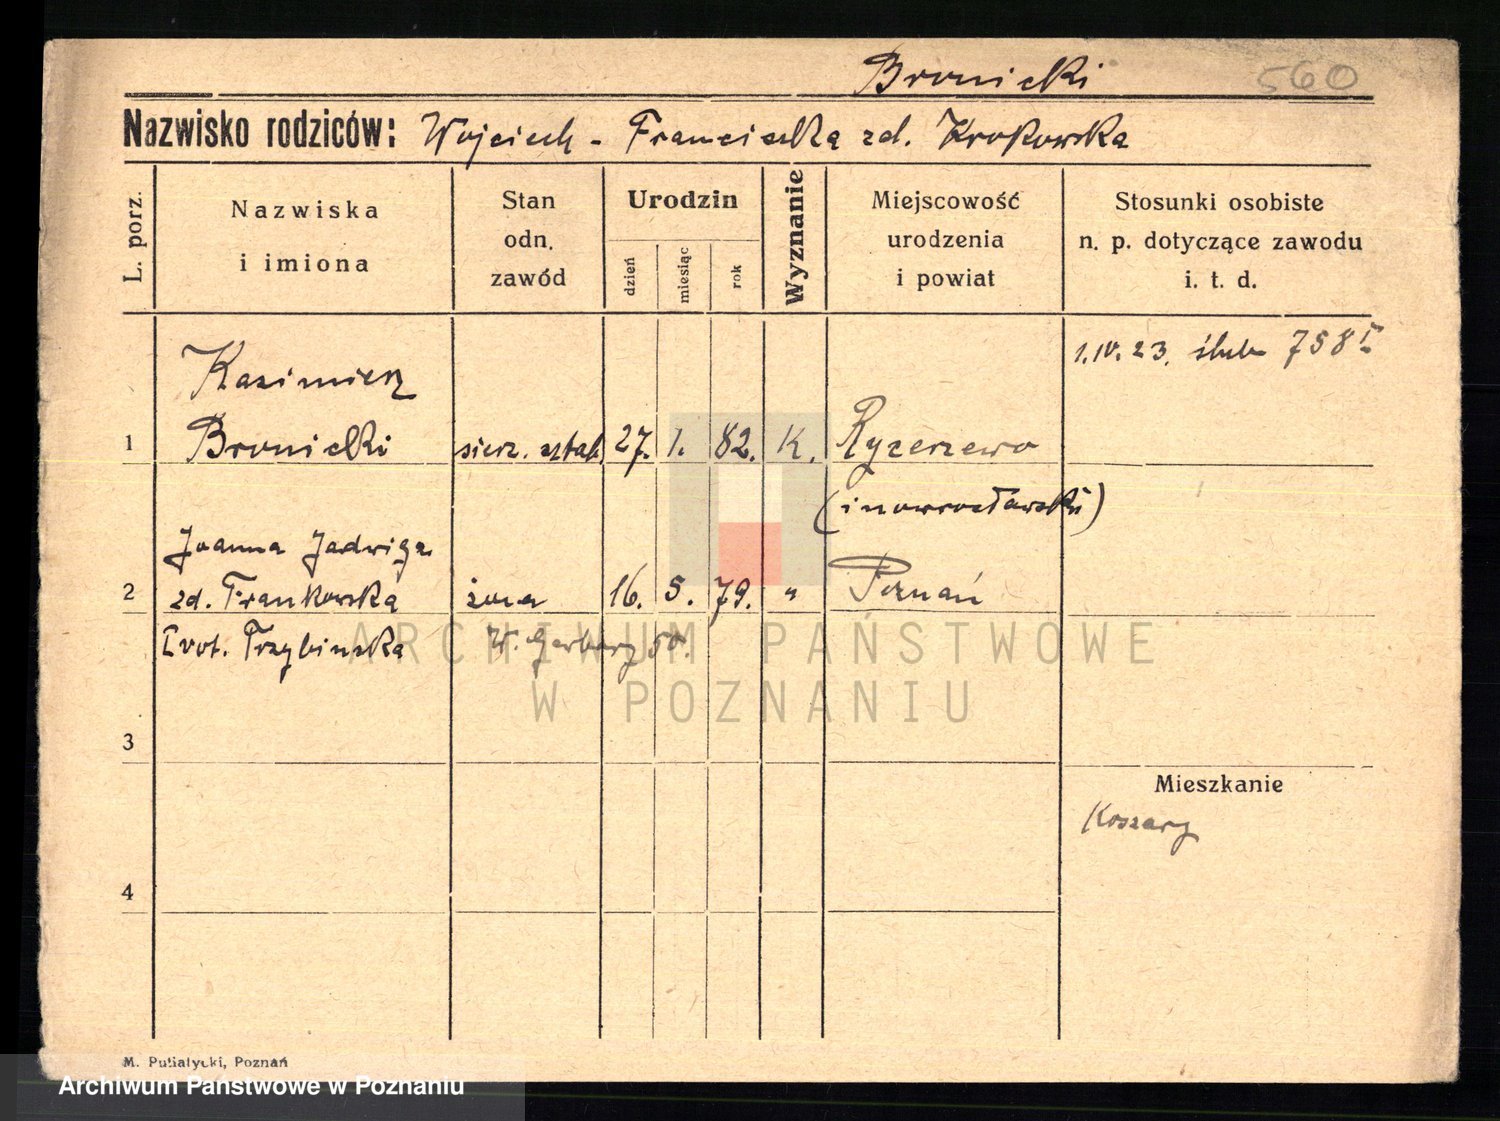 Bronicki 560
Nazwisko rodziców: Wojciech - Franciszka zd. Krokowska
L. porz.
Nazwiska
i imiona
Stan
odn.
zawód
Urodzin
dzień
miesiąc
rok
Wyznanie
Miejscowość
urodzenia
i powiat
Stosunki osobiste
n. p. dotyczące zawodu
i. t. d.
1.IV.23. ślub 758
Kazimierz
1 Bronicki sierż. sztab. 27. 1. 82. K. Ryszerzewo
(inowrocławski)
Joanna Jadwiga
2 zd. Frankowska żona 16. 5. 79. " Poznań
I vot. Trzybinska W. Garbary 50.
ARCHIWUM PAŃSTWOWE
W POZNANIU
3
Mieszkanie
Koszary
4
M. Putiatycki, Poznań
Archiwum Państwowe w Poznaniu